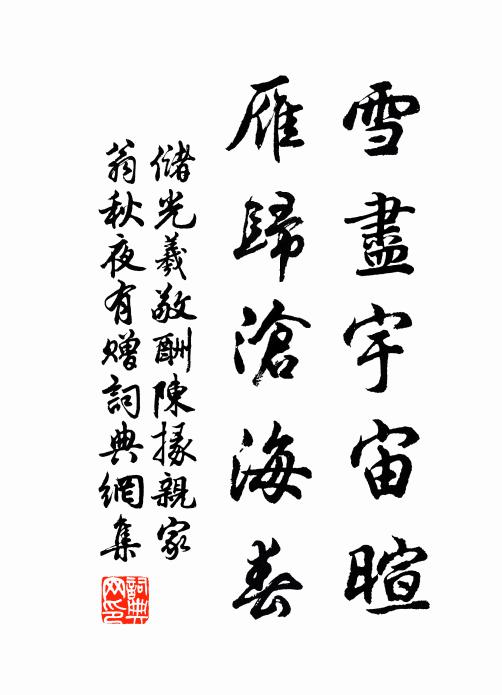 雪盡宇宙暄
雁歸滄海春
儲光羲敬酬陳掾親家
翁秋夜有贈詞典網集
詞典
网印